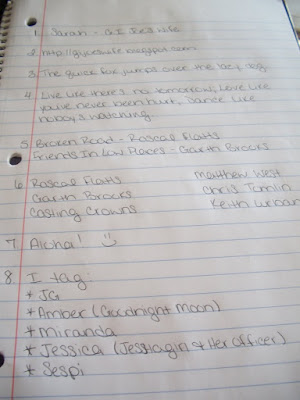 1. Sarah - G.I. Joe's Wife
2. http://gijoeswife.blogspot.com
3. The quick fox jumps over the lazy dog.
4. Live like there's no tomorrow, love like
you've never been hurt, dance like
nobody's watching.
5. Broken Road - Rascal Flatts
Friends In Low Places - Garth Brocks
6. Rascal Flatts Matthew West
Garth Brocks Chris Tomlin
Casting Crowns Keith Urban
7. Aloha! :)
8. I tag:
* JG
* Amber (Goodnight Moon)
* Miranda
* Jessica (JessHagin & Her Officer)
* Sespi